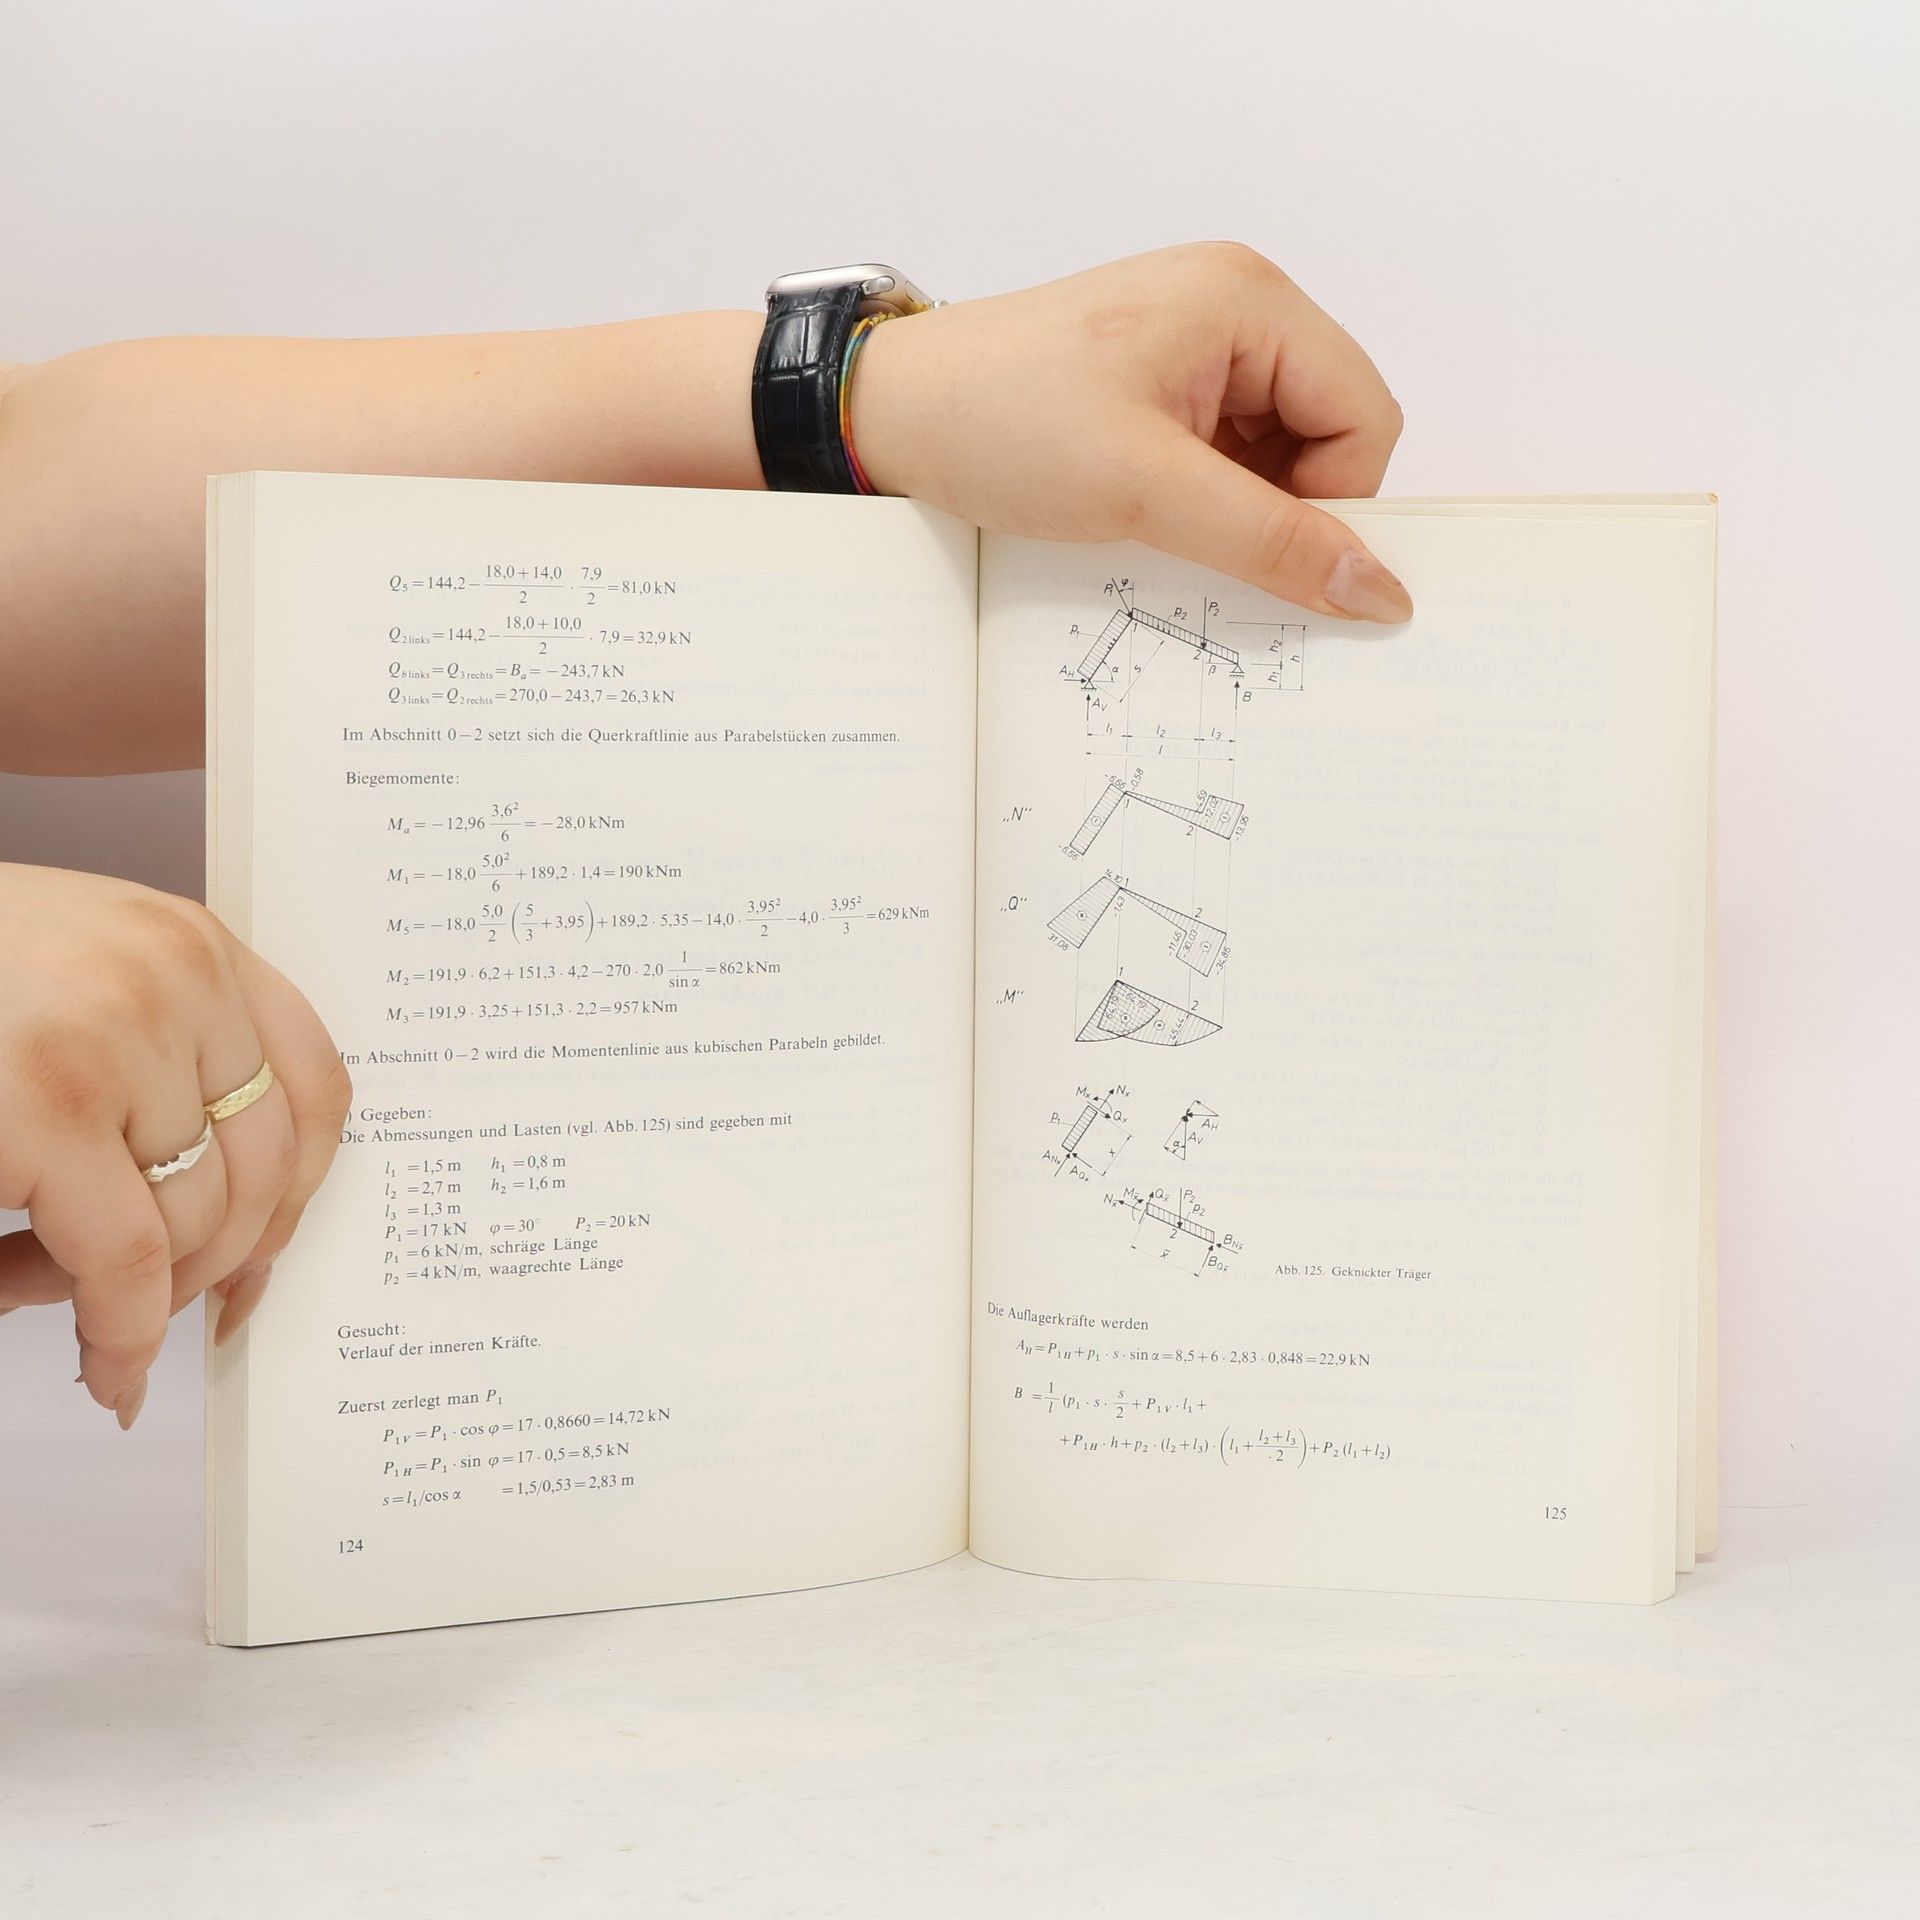 Q₅ = 144,2 − (18,0 + 14,0)/2 · 7,9/2 = 81,0 kN
Q₂ links = 144,2 − (18,0 + 10,0)/2 · 7,9 = 32,9 kN
Q_b links = Q₃ rechts = B_a = − 243,7 kN
Q₃ links = Q₂ rechts = 270,0 − 243,7 = 26,3 kN
Im Abschnitt 0 − 2 setzt sich die Querkraftlinie aus Parabelstücken zusammen.
Biegemomente:
M_a = − 12,96 3,6²/6 = − 28,0 kNm
M₁ = − 18,0 5,0²/6 + 189,2 · 1,4 = 190 kNm
M₅ = − 18,0 5,0/2 (5/3 + 3,95) + 189,2 · 5,35 − 14,0 · 3,95²/2 − 4,0 · 3,95²/3 = 629 kNm
M₂ = 191,9 · 6,2 + 151,3 · 4,2 − 270 · 2,0 1/sin α = 862 kNm
M₃ = 191,9 · 3,25 + 151,3 · 2,2 = 957 kNm
Im Abschnitt 0 − 2 wird die Momentenlinie aus kubischen Parabeln gebildet.
) Gegeben:
Die Abmessungen und Lasten (vgl. Abb. 125) sind gegeben mit
l₁ = 1,5 m h₁ = 0,8 m
l₂ = 2,7 m h₂ = 1,6 m
l₃ = 1,3 m
P₁ = 17 kN φ = 30° P₂ = 20 kN
p₁ = 6 kN/m, schräge Länge
p₂ = 4 kN/m, waagrechte Länge
Gesucht:
Verlauf der inneren Kräfte.
Zuerst zerlegt man P₁
P₁V = P₁ · cos φ = 17 · 0,8660 = 14,72 kN
P₁H = P₁ · sin φ = 17 · 0,5 = 8,5 kN
s = l₁/cos α = 1,5/0,53 = 2,83 m
124
P₁ φ
p₁ 1 p₂ P₂
A_H α s 2 β h₁ h₂ h
A_V B
l₁ l₂ l₃
l
„N“ -6,66 -0,58 1 -4,59 -12,02 2 -13,95 -6,66
„Q“ 14,10 1 -1,43 2 31,08 -11,46 -30,03 -34,86
„M“ 1 64,19 64,19 2 45,44
M_x N_x
p₁ Q_x x
A_Nx A_Qx
A_H A_V α
N_x̄ M_x̄ Q_x̄ P₂ p₂
2 x̄ B_Nx̄ B_Qx̄
Abb. 125. Geknickter Träger
Die Auflagerkräfte werden
A_H = P₁H + p₁ · s · sin α = 8,5 + 6 · 2,83 · 0,848 = 22,9 kN
B = 1/l (p₁ · s · s/2 + P₁V · l₁ +
+ P₁H · h + p₂ · (l₂ + l₃) · (l₁ + (l₂ + l₃)/2) + P₂ (l₁ + l₂)
125